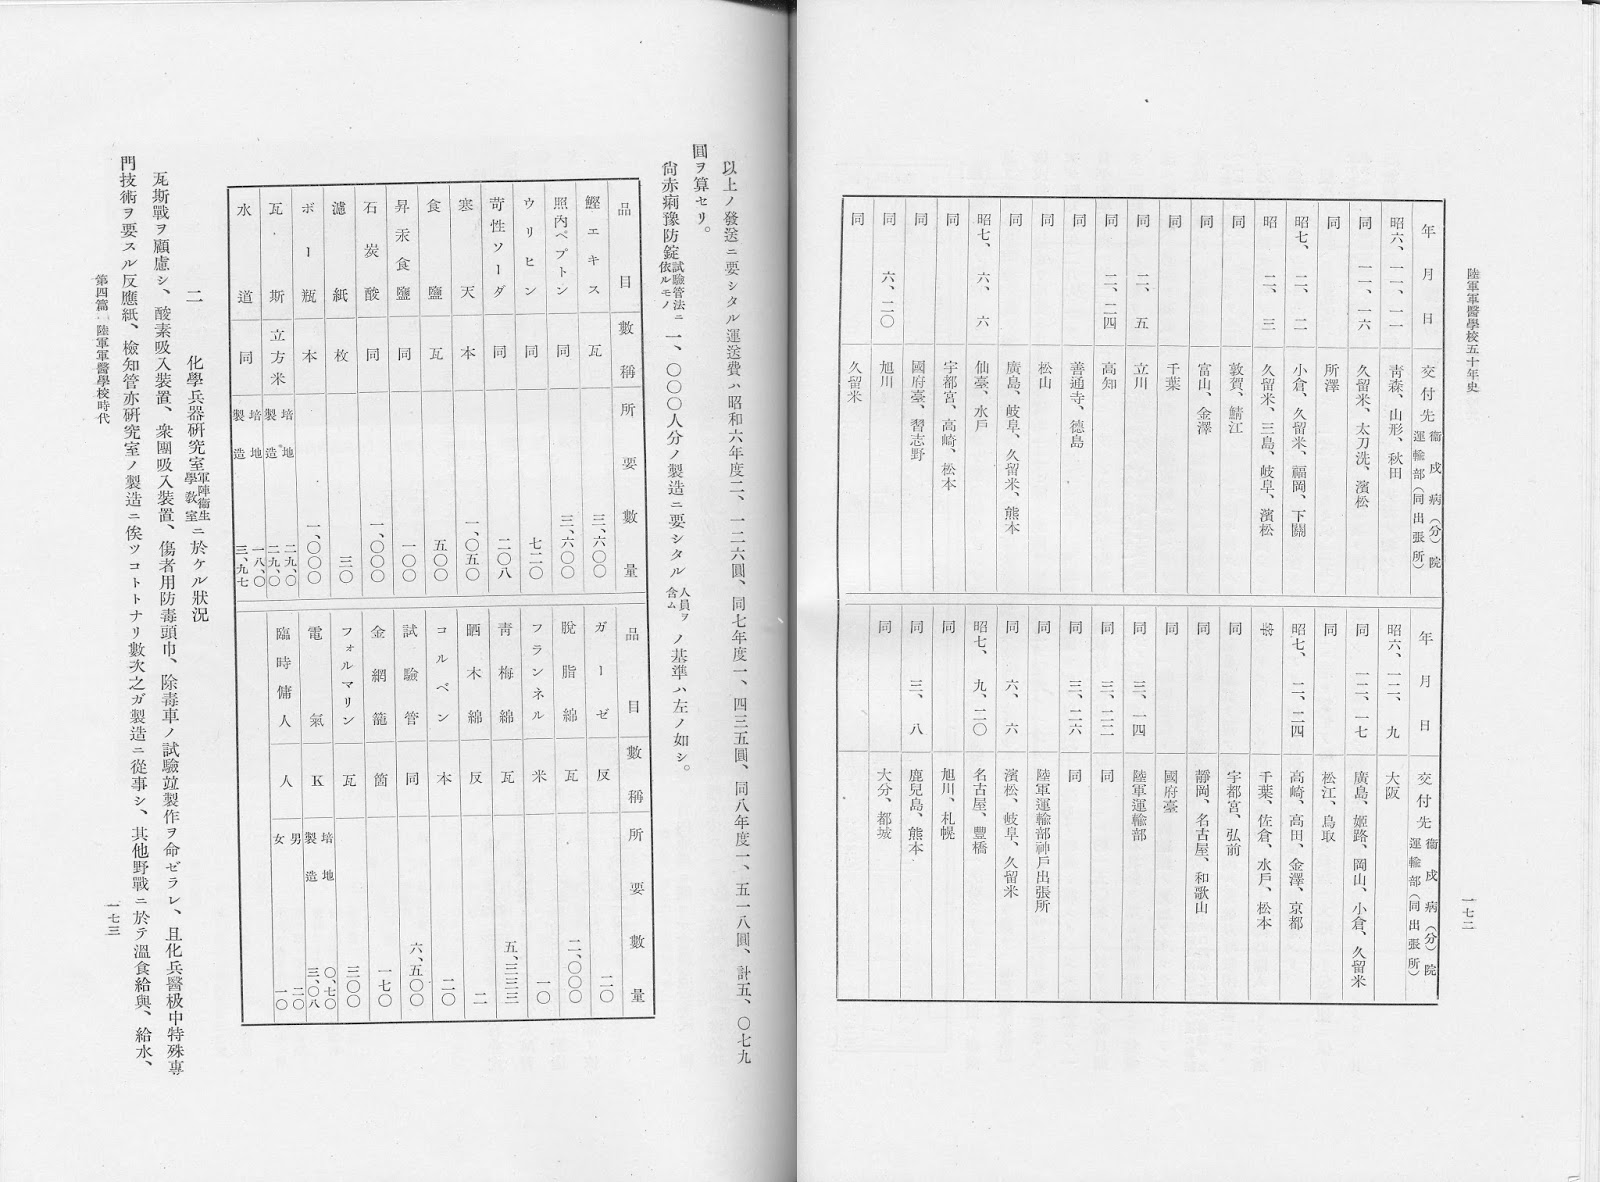 陸軍軍醫學校五十年史
一七二
年月日
交付先 衞戍病(分)院 運輸部(同出張所)
昭六、一一、一一 靑森、山形、秋田
同 一一、一六 久留米、太刀洗、濱松
同 所澤
昭七、二、二 小倉、久留米、福岡、下關
昭 二、三 久留米、三島、岐阜、濱松
同 敦賀、鯖江
同 富山、金澤
同 千葉
同 二、五 立川
同 二、二四 高知
同 善通寺、德島
同 松山
同 廣島、岐阜、久留米、熊本
昭七、六、六 仙臺、水戶
同 宇都宮、高崎、松本
同 國府臺、習志野
同 六、二〇 旭川
同 久留米
年月日
交付先 衞戍病(分)院 運輸部(同出張所)
昭六、一二、九 大阪
同 一二、一七 廣島、姬路、岡山、小倉、久留米
同 松江、鳥取
昭七、二、二四 高崎、高田、金澤、京都
千葉、佐倉、水戶、松本
同 宇都宮、弘前
同 靜岡、名古屋、和歌山
同 國府臺
同 三、一四 陸軍運輸部
同 三、二二 同
同 三、二六 同
同 陸軍運輸部神戶出張所
同 六、六 濱松、岐阜、久留米
昭七、九、二〇 名古屋、豐橋
同 旭川、札幌
同 三、八 鹿兒島、熊本
同 大分、都城
以上ノ發送ニ要シタル運送費ハ昭和六年度二、一二六圓、同七年度一、四三五圓、同八年度一、五一八圓、計五、〇七九
圓ヲ算セリ。
尙赤痢豫防錠 試驗管法ニ依ルモノ 一、〇〇〇人分ノ製造ニ要シタル 人員ヲ含ム ノ基準ハ左ノ如シ。
品目 數稱 所要數量
鰹エキス 瓦 三、六〇〇
照內ペプトン 同 三、六〇〇
ウリヒン 同 七二〇
苛性ソーダ 同 二〇八
寒天 本 一、〇五〇
食鹽 瓦 五〇〇
昇汞食鹽 同 一〇〇
石炭酸 同 一、〇〇〇
濾紙 枚 三〇
ボー瓶 本 一、〇〇〇
瓦斯 立方米 培地 二九、〇 製造 二九、〇
水道 同 培地 一八、〇 製造 三、九七
品目 數稱 所要數量
ガーゼ 反 二〇
脫脂綿 瓦 二、〇〇〇
フランネル 米 一〇
靑梅綿 瓦 五、三三三
晒木綿 反 二
コルベン 本 二〇
試驗管 同 六、五〇〇
金網籠 箇 一七〇
フォルマリン 瓦 三〇〇
電氣 K 培地 〇、七〇 製造 三、〇八
臨時傭人 人 男 二〇 女 一〇
二 化學兵器硏究室 軍陣衞生學敎室 ニ於ケル狀況
瓦斯戰ヲ顧慮シ、酸素吸入裝置、衆團吸入裝置、傷者用防毒頭巾、除毒車ノ試驗竝製作ヲ命ゼラレ、且化兵醫极中特殊專
門技術ヲ要スル反應紙、檢知管亦硏究室ノ製造ニ俟ツコトトナリ數次之ガ製造ニ從事シ、其他野戰ニ於テ溫食給與、給水、
第四篇 陸軍軍醫學校時代
一七三